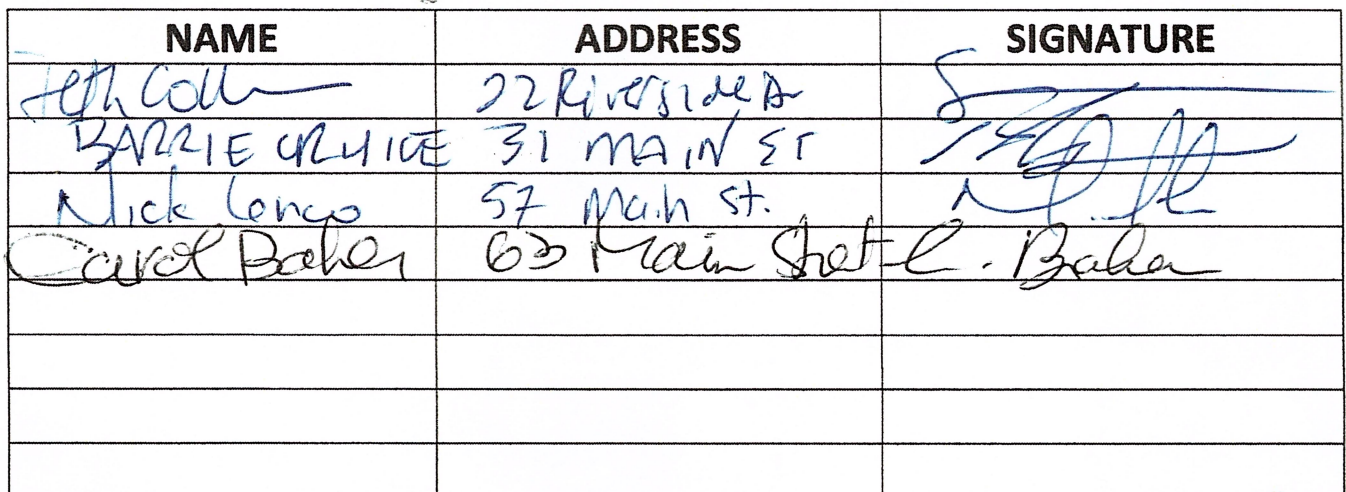 NAME ADDRESS SIGNATURE
22 Riverside Dr
BARRIE CRUICE 31 MAIN ST
Nick 57 Main St.
Carol Baker 63 Main Street C. Baker